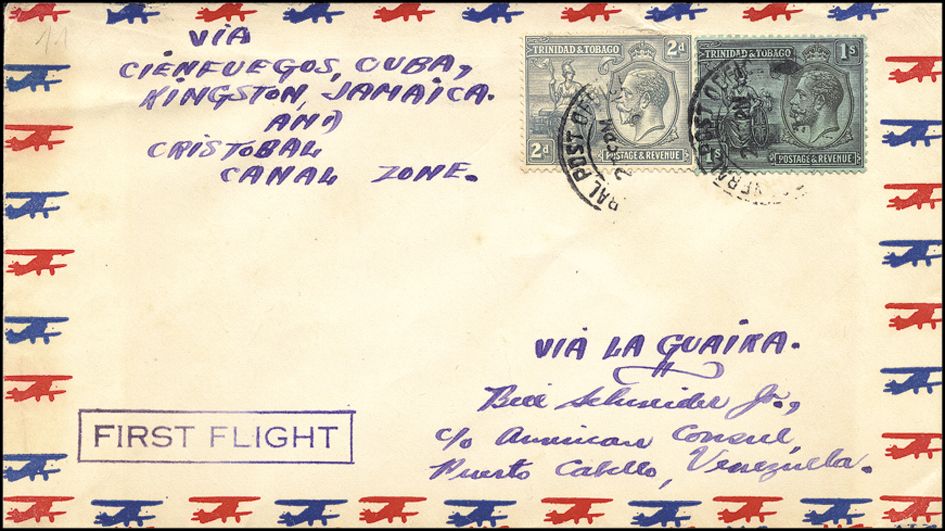 11
VIA
CIENFUEGOS, CUBA,
KINGSTON, JAMAICA.
AND
CRISTOBAL
CANAL ZONE.
TRINIDAD & TOBAGO 2d
2d POSTAGE & REVENUE
TRINIDAD & TOBAGO 1s
1s POSTAGE & REVENUE
RAL POST OF
PM
GENERAL POST OFFICE
VIA LA GUAIRA.
Bill Schneider Jr.,
c/o American Consul,
Puerto Cabello, Venezuela.
FIRST FLIGHT